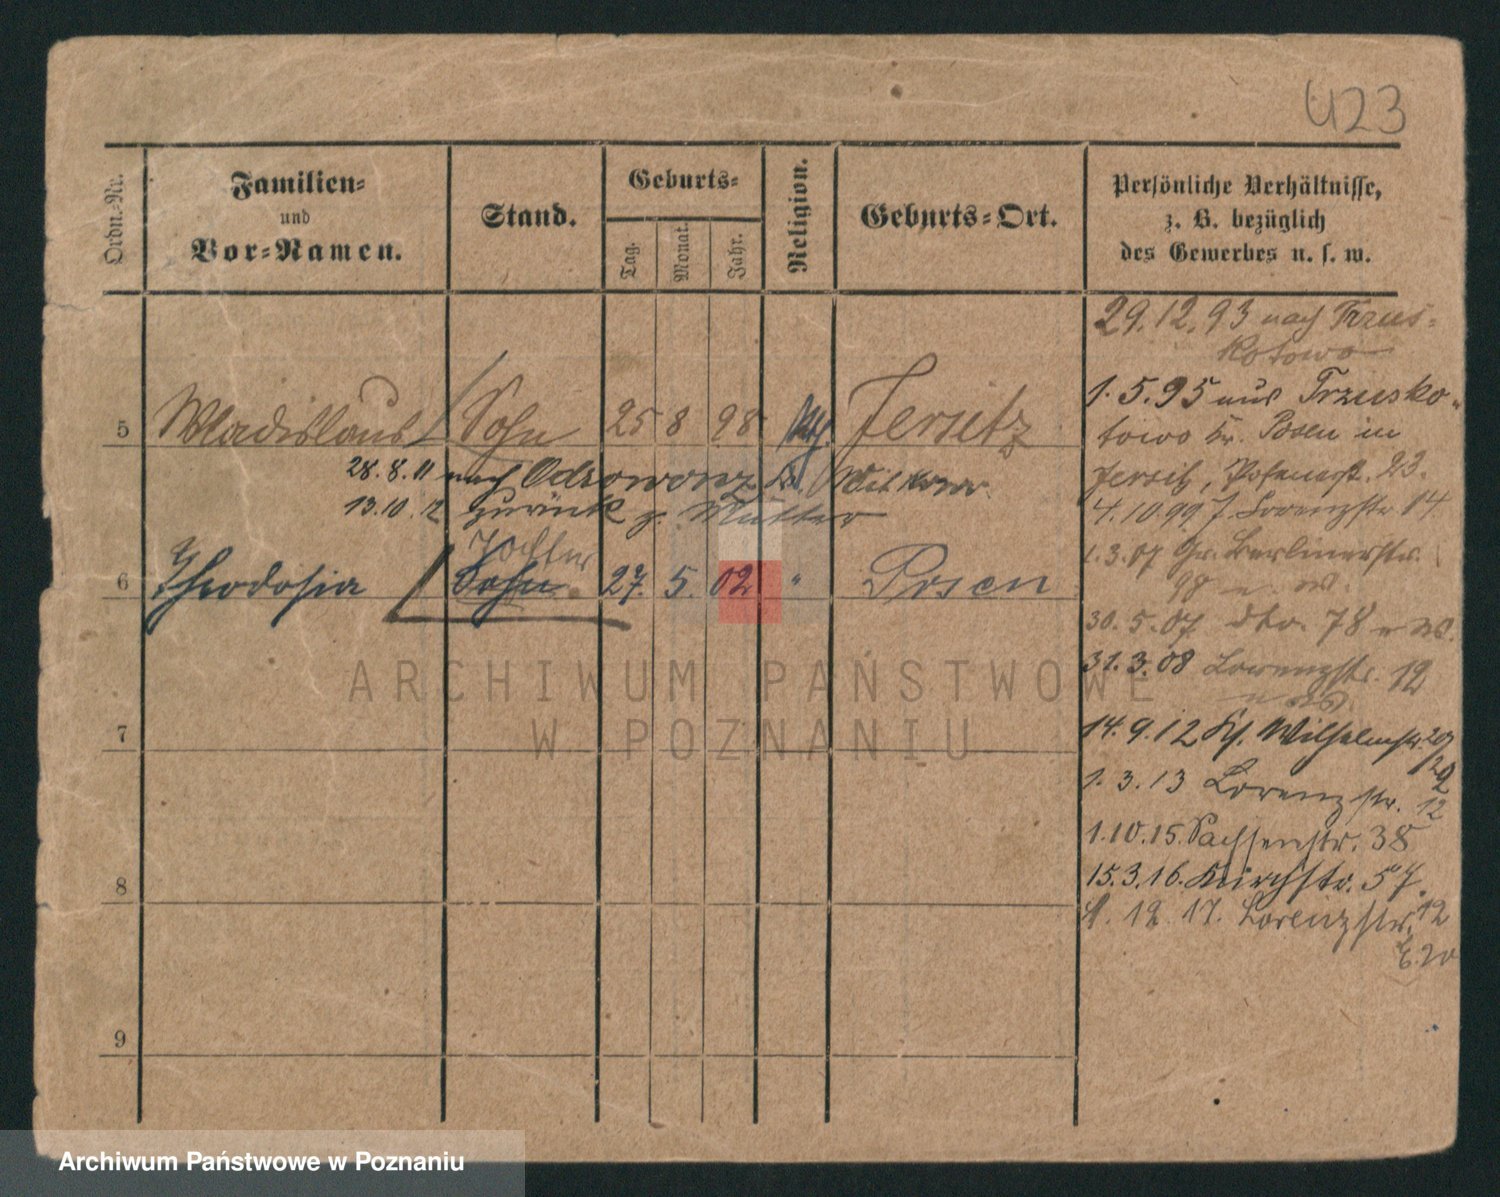 423
Ordn.-Nr.
Familien-
und
Vor-Namen.
Stand.
Geburts-
Tag.
Monat.
Jahr.
Religion.
Geburts-Ort.
Persönliche Verhältnisse,
z. B. bezüglich
des Gewerbes u. s. w.
29.12.93 nach Trzus-
kotowo
1.5.95 aus Trzusko-
towo Kr. Posen in
Jersitz, Posenerst. 23.
4.10.99 J. Lorenzstr. 14
1.3.07 Gr. Berlinerstr.
98 n. W.
30.5.07 dto. 78 n W.
31.3.08 Lorenzstr. 12
14.9.12 Kl. Wilhelmstr.
1.3.13 Lorenzstr. 12
1.10.15. Sachsenstr. 38
15.3.16. Kirchstr. 57.
12.17. Lorenzstr. 12
5 Wladislaus Sohn 25 8 98 Jersitz
28.8.11 nach Odrowonz Kr. Witkowo.
13.10.12 zurück z. Mutter
Tochter
6 Theodosia Sohn 27. 5. 02 " Posen
7
8
9
ARCHIWUM PAŃSTWOWE
W POZNANIU
Archiwum Państwowe w Poznaniu